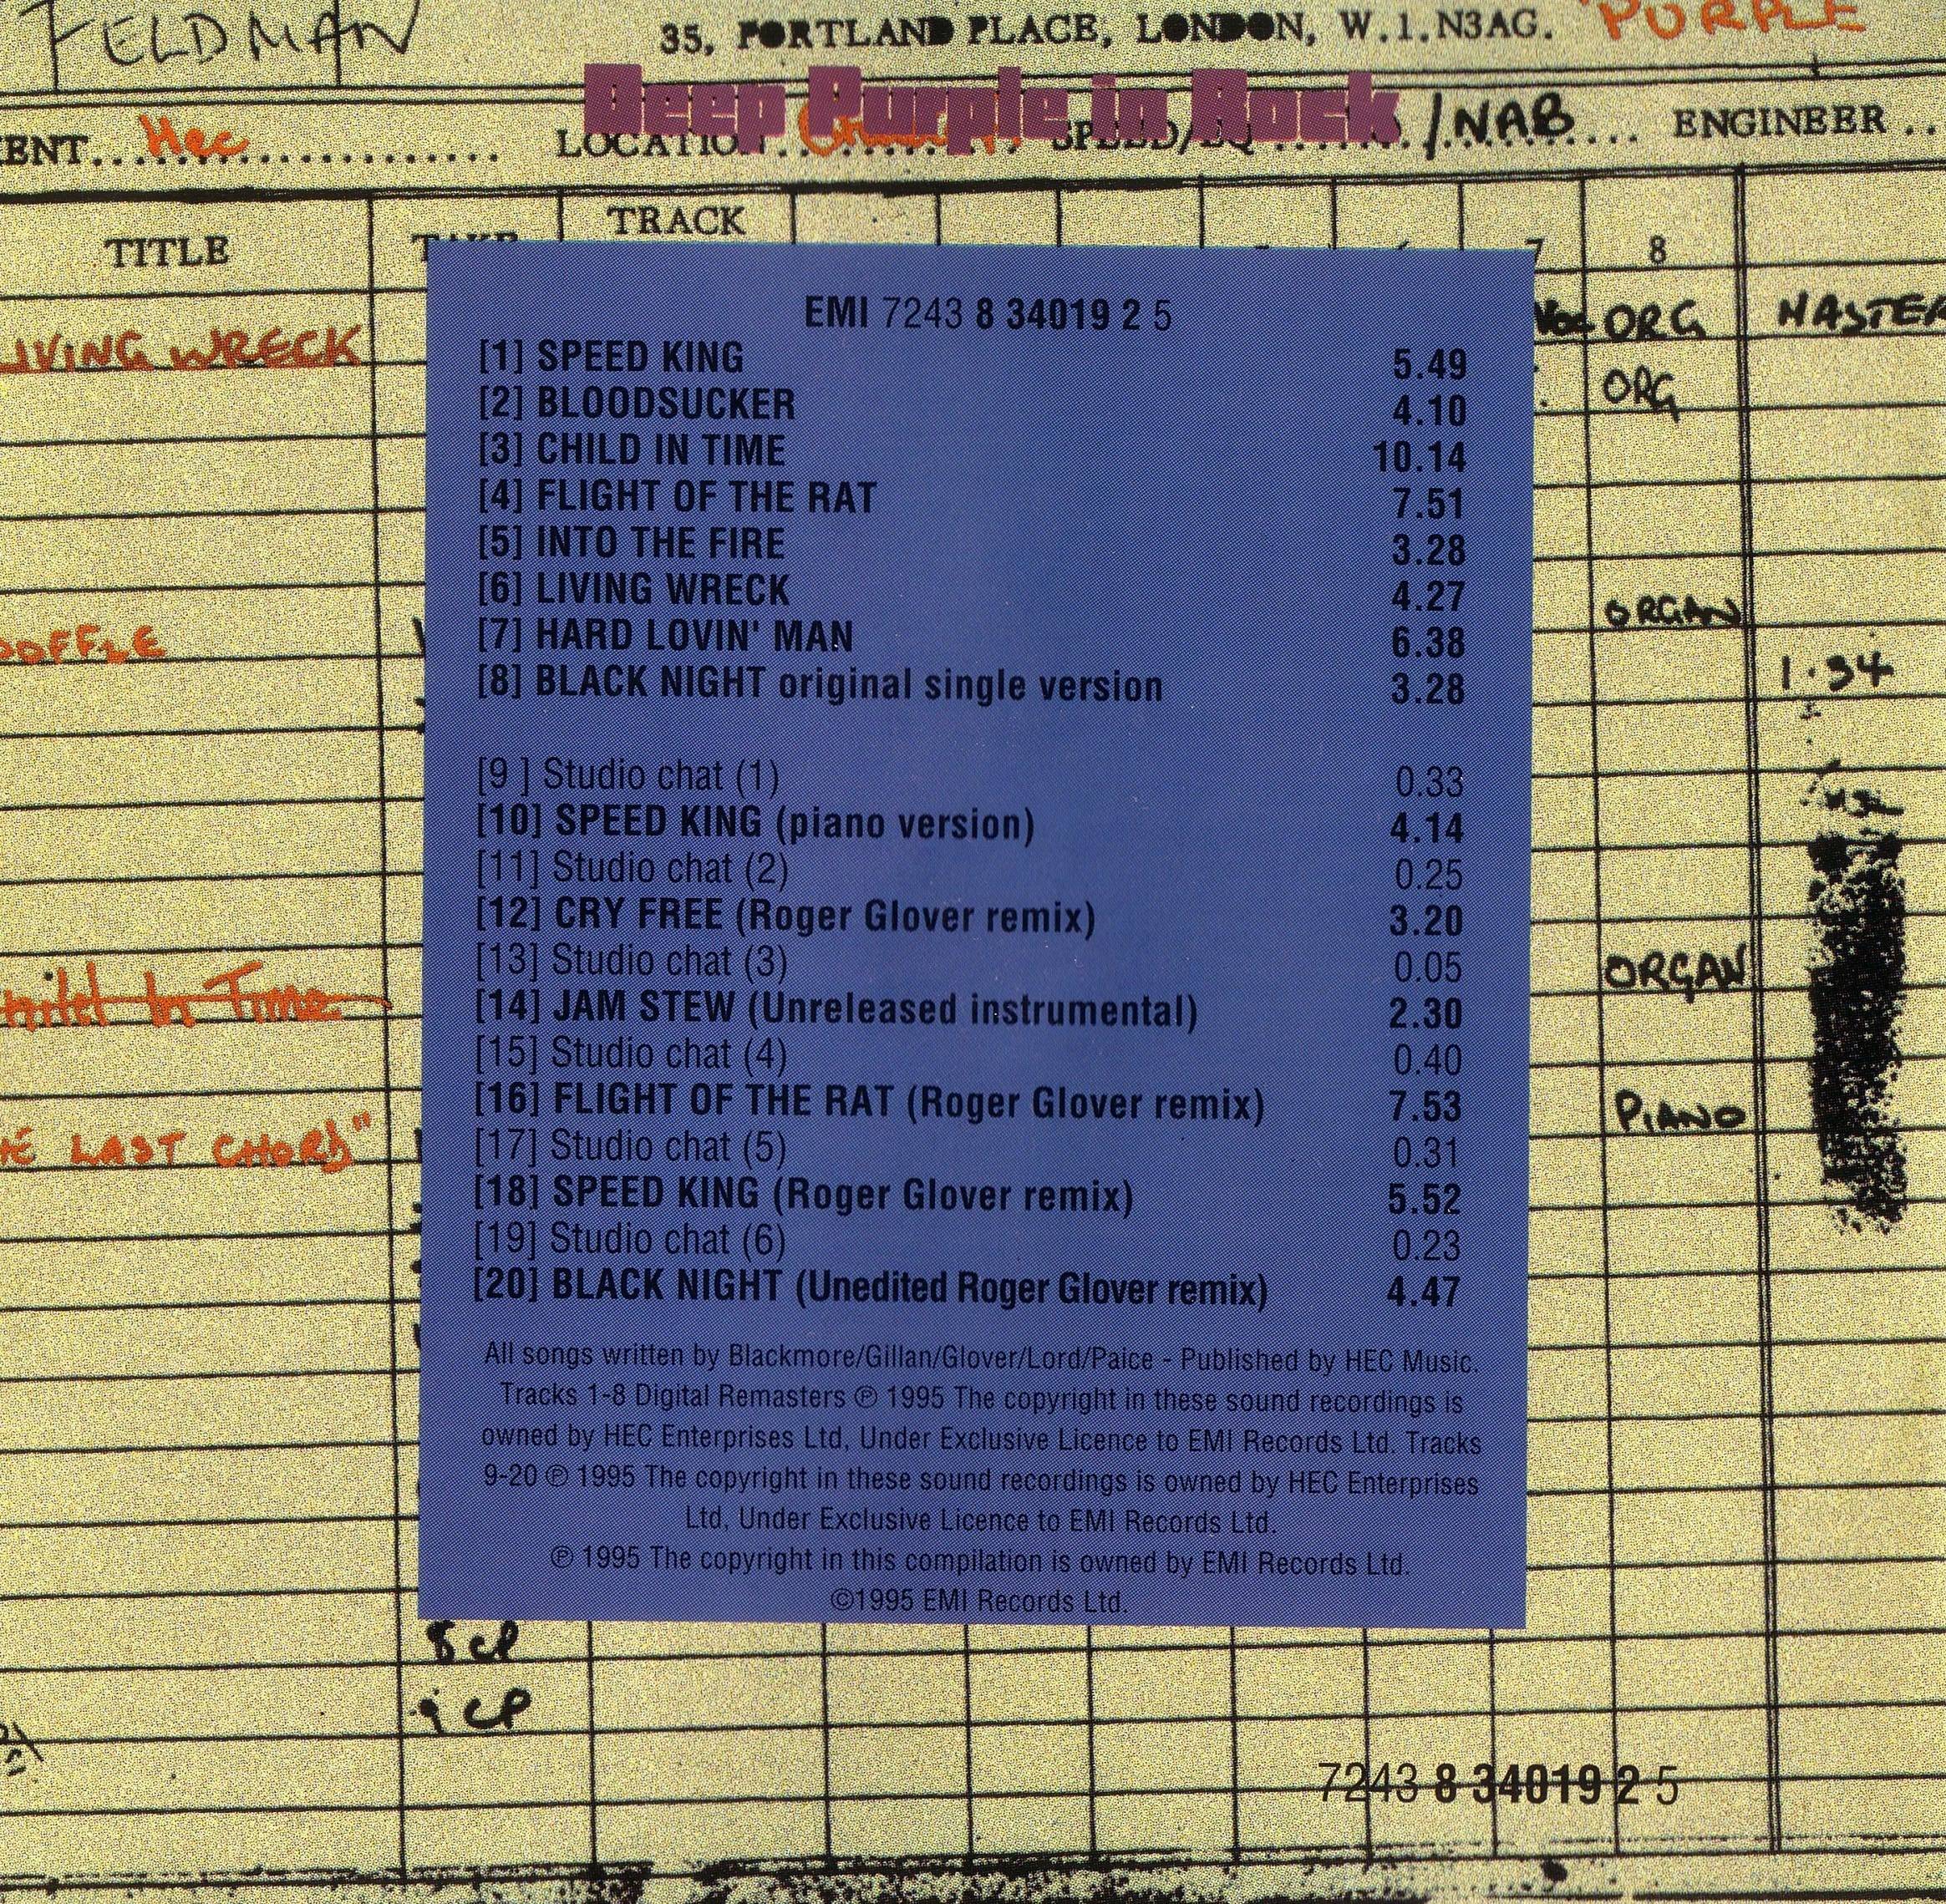 FELDMAN
35, PORTLAND PLACE, LONDON, W.1.N3AG. "PURPLE
Deep Purple in Rock
ENT... Hec LOCATION SPEED/EQ /NAB ENGINEER ..
TITLE TAKE TRACK 7 8
EMI 7243 8 34019 2 5
[1] SPEED KING 5.49
[2] BLOODSUCKER 4.10
[3] CHILD IN TIME 10.14
[4] FLIGHT OF THE RAT 7.51
[5] INTO THE FIRE 3.28
[6] LIVING WRECK 4.27
[7] HARD LOVIN' MAN 6.38
[8] BLACK NIGHT original single version 3.28
[9 ] Studio chat (1) 0.33
[10] SPEED KING (piano version) 4.14
[11] Studio chat (2) 0.25
[12] CRY FREE (Roger Glover remix) 3.20
[13] Studio chat (3) 0.05
[14] JAM STEW (Unreleased instrumental) 2.30
[15] Studio chat (4) 0.40
[16] FLIGHT OF THE RAT (Roger Glover remix) 7.53
[17] Studio chat (5) 0.31
[18] SPEED KING (Roger Glover remix) 5.52
[19] Studio chat (6) 0.23
[20] BLACK NIGHT (Unedited Roger Glover remix) 4.47
All songs written by Blackmore/Gillan/Glover/Lord/Paice - Published by HEC Music.
Tracks 1-8 Digital Remasters ℗ 1995 The copyright in these sound recordings is
owned by HEC Enterprises Ltd, Under Exclusive Licence to EMI Records Ltd. Tracks
9-20 ℗ 1995 The copyright in these sound recordings is owned by HEC Enterprises
Ltd, Under Exclusive Licence to EMI Records Ltd.
℗ 1995 The copyright in this compilation is owned by EMI Records Ltd.
©1995 EMI Records Ltd.
LIVING WRECK
OOFFLE
Child In Time
HE LAST CHORD"
ORG MASTER
ORG
ORGAN
1.34
ORGAN
PIANO
8 CP
9 CP
7243 8 34019 2 5